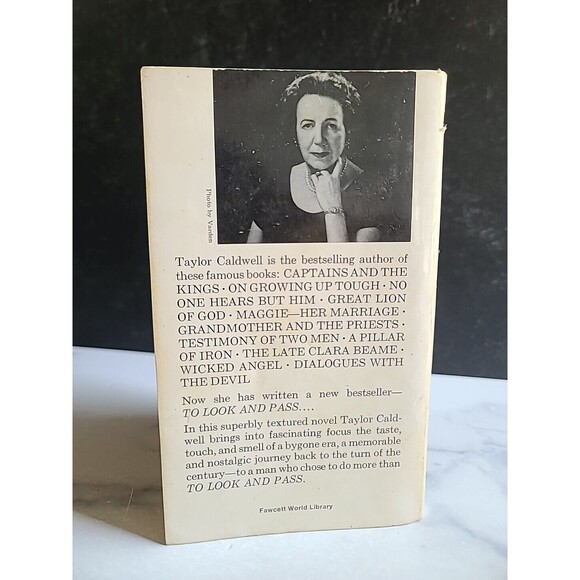 Photo by Varden
Taylor Caldwell is the bestselling author of
these famous books: CAPTAINS AND THE
KINGS · ON GROWING UP TOUGH · NO
ONE HEARS BUT HIM · GREAT LION
OF GOD · MAGGIE—HER MARRIAGE ·
GRANDMOTHER AND THE PRIESTS ·
TESTIMONY OF TWO MEN · A PILLAR
OF IRON · THE LATE CLARA BEAME ·
WICKED ANGEL · DIALOGUES WITH
THE DEVIL
Now she has written a new bestseller—
TO LOOK AND PASS....
In this superbly textured novel Taylor Cald-
well brings into fascinating focus the taste,
touch, and smell of a bygone era, a memorable
and nostalgic journey back to the turn of the
century—to a man who chose to do more than
TO LOOK AND PASS.
Fawcett World Library